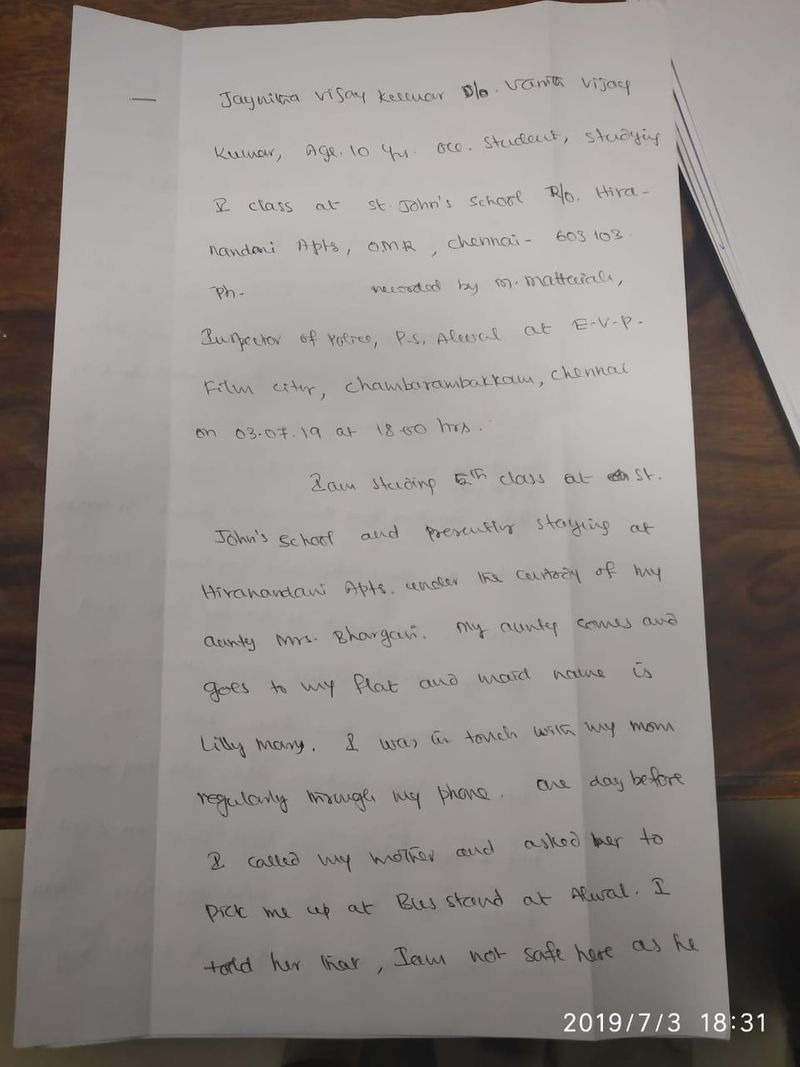 Jaynitha Vijay Kumar D/o. Vanith Vijay
Kumar, Age. 10 Yrs. Occ. Student, Studying
V class at St. John's School R/o. Hira-
nandani Apts, OMR, Chennai- 603 103.
Ph- recorded by M. Mattaiah,
Inspector of Police, P.S. Alwal at E-V-P-
Film City, Chambarambakkam, Chennai
on 03.07.19 at 18.00 hrs.
I am studing 5th class at St.
John's School and presently staying at
Hiranandani Apts. under the custody of my
aunty Mrs. Bhargavi. My aunty comes and
goes to my flat and maid name is
Lilly Mary. I was in touch with my mom
regularly through my phone. One day before
I called my mother and asked her to
pick me up at Bus stand at Alwal. I
told her that, I am not safe here as he
2019/7/3 18:31